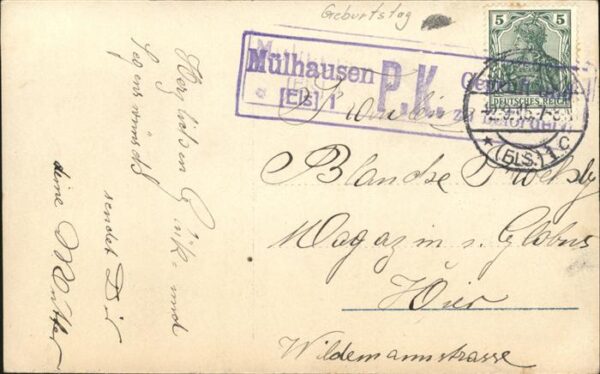 Geburtstag
5
DEUTSCHES REICH
Mülhausen
[Els] 1
P.K.
zu befördern
(ELS.) 1 C
Herzlichen Glück- und
Segenswunsch
sendet Dir
deine Mutter
Fräulein
Blanche
Magazin z. Globus
Hier
Wildemannstrasse